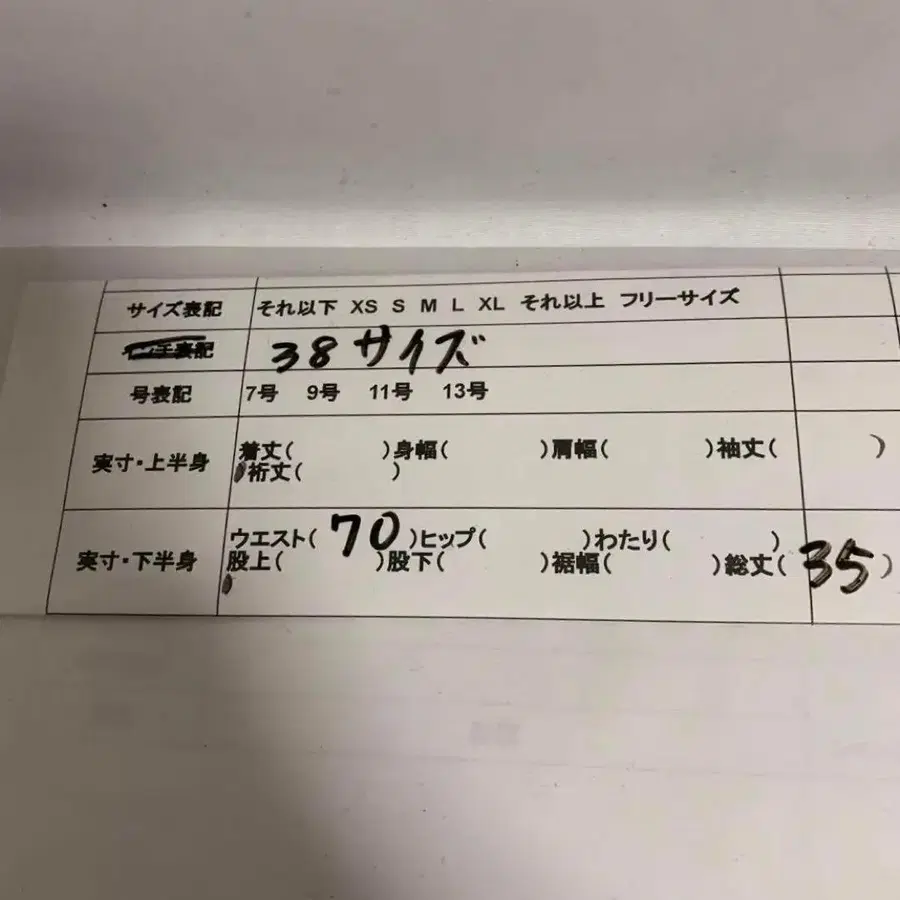 サイズ表記 それ以下 XS S M L XL それ以上 フリーサイズ
表記 38サイズ
号表記 7号 9号 11号 13号
実寸・上半身 着丈( )身幅( )肩幅( )袖丈( )
裄丈( )
実寸・下半身 ウエスト( 70 )ヒップ( )わたり( )
股上( )股下( )裾幅( )総丈( 35 )